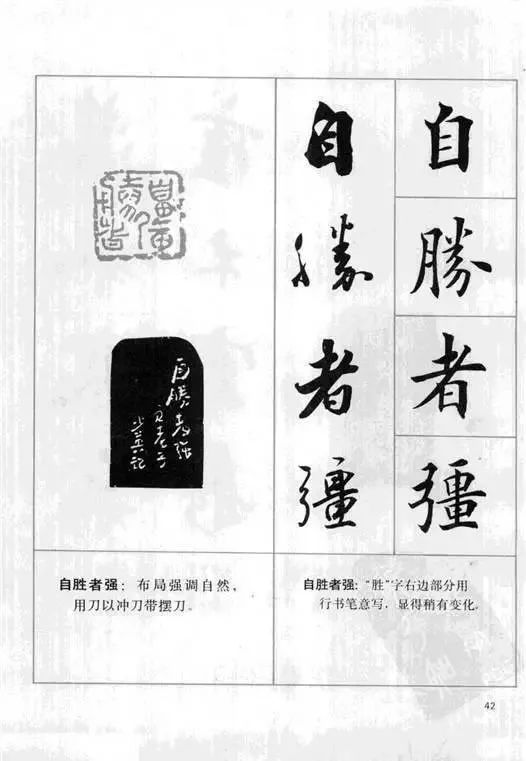 自勝者彊
自勝者彊
自勝者强
见老子
自胜者强：布局强调自然，
用刀以冲刀带摆刀。
自胜者强：“胜”字右边部分用
行书笔意写，显得稍有变化。
42